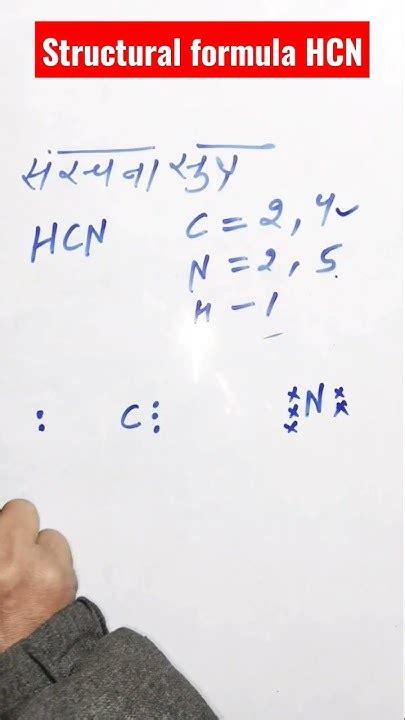 Structural formula HCN
संरचना सूत्र
HCN
C = 2, 4
N = 2, 5
H - 1
C
N